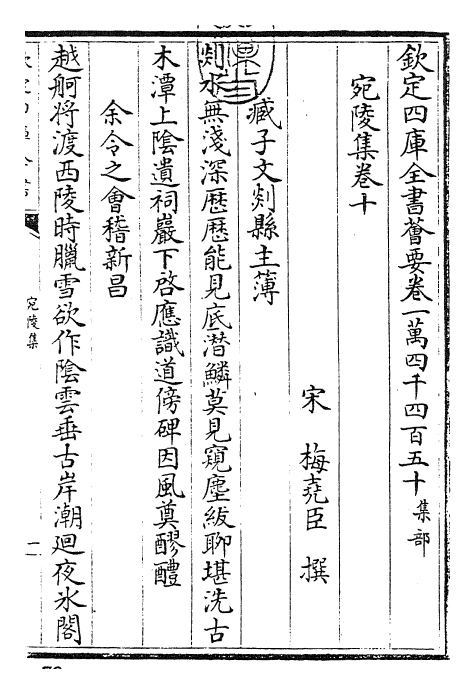 欽定四庫全書薈要卷一萬四千四百五十 集部
宛陵集卷十
宋 梅堯臣 撰
臧子文剡縣主薄
剡水無淺深歴歴能見底潜鱗莫見窺塵紱聊堪洗古
木潭上隂遺祠巖下啓應識道傍碑因風奠醪醴
余令之會稽新昌
越舸将渡西陵時臘雪欲作隂雲垂古岸潮廻夜氷閣
宛陵集
一